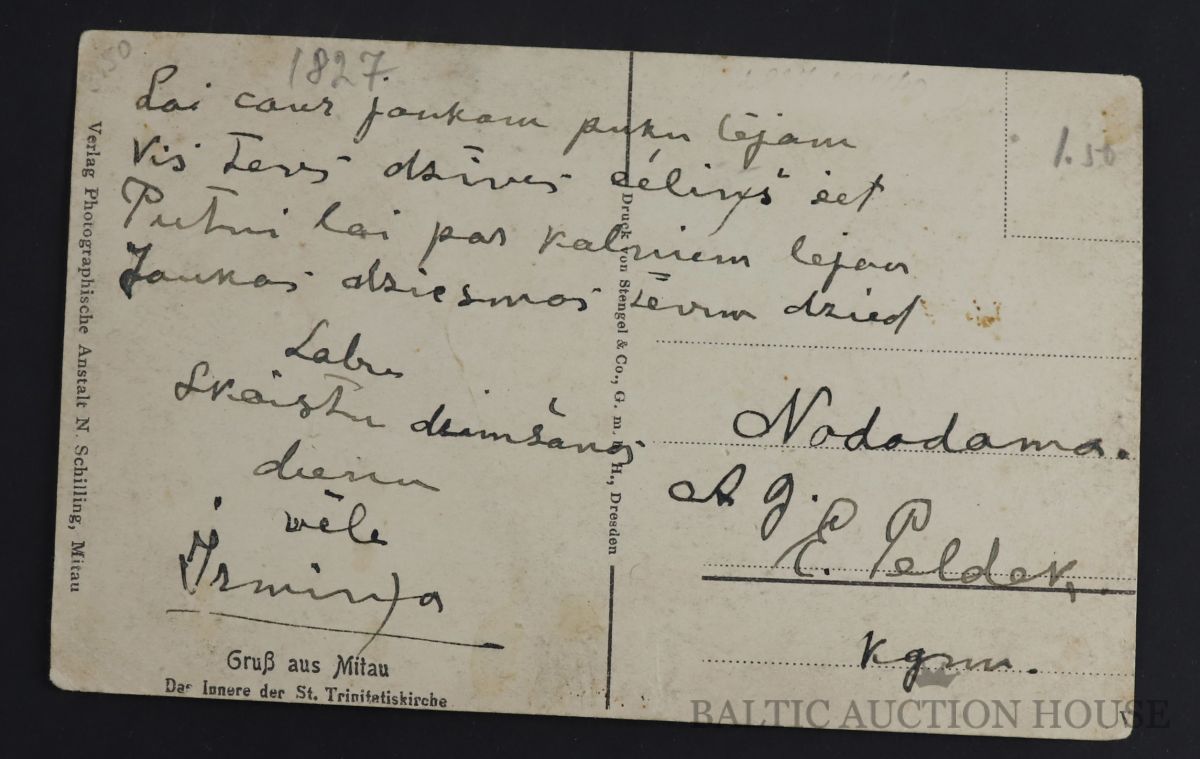 1827.
1.50
Lai caur jaukam puķu lejam
Vis tevs dzīves celiņš iet
Putni lai par kalniem lejan
Jaukas dziesmas tevim dzied
Labu
Skaistu dzimšanas
dienu
vēle
Irmiņa
Gruß aus Mitau
Das Innere der St. Trinitatiskirche
Verlag Photographische Anstalt N. Schilling, Mitau
Druck von Stengel & Co., G. m. b. H., Dresden
1.50
Nododama.
A. g.
E. Peldek,
kgm.
BALTIC AUCTION HOUSE